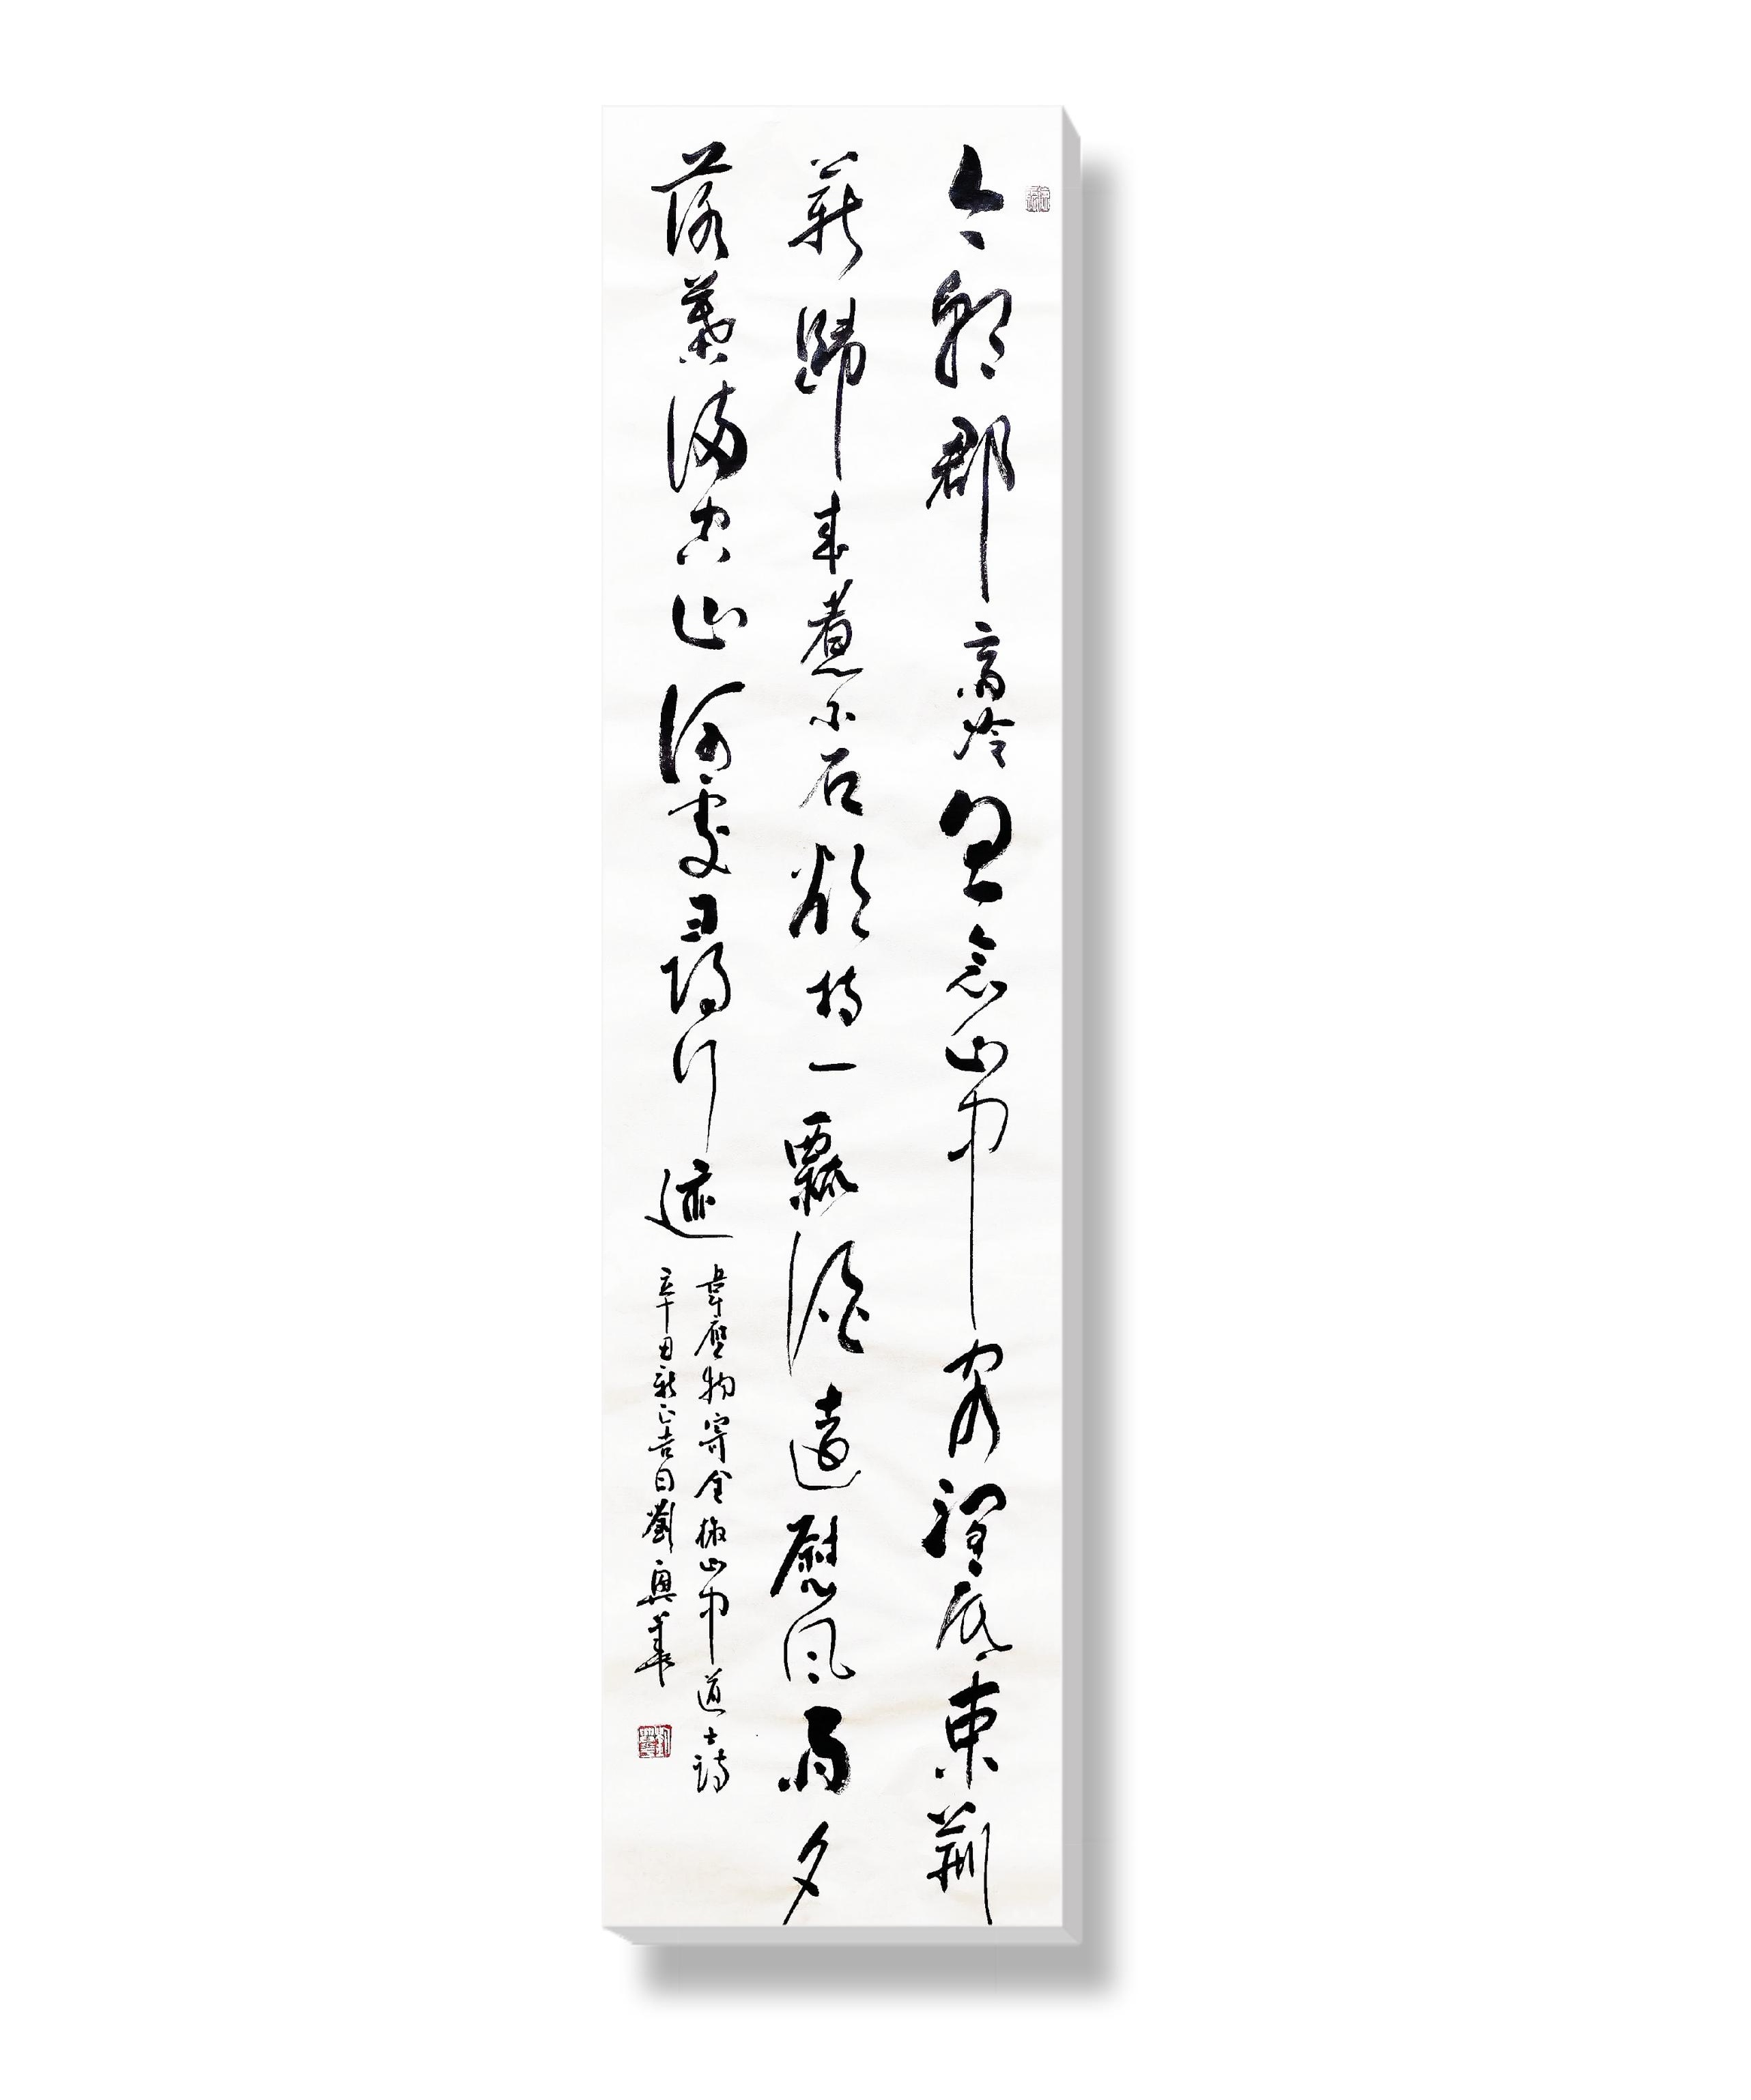 今朝郡齋冷忽念山中客澗底束荊
薪歸來煮白石欲持一瓢酒遠慰風雨夕
落葉滿空山何處尋行迹
韋應物寄全椒山中道士詩
辛丑新正吉日劉興華